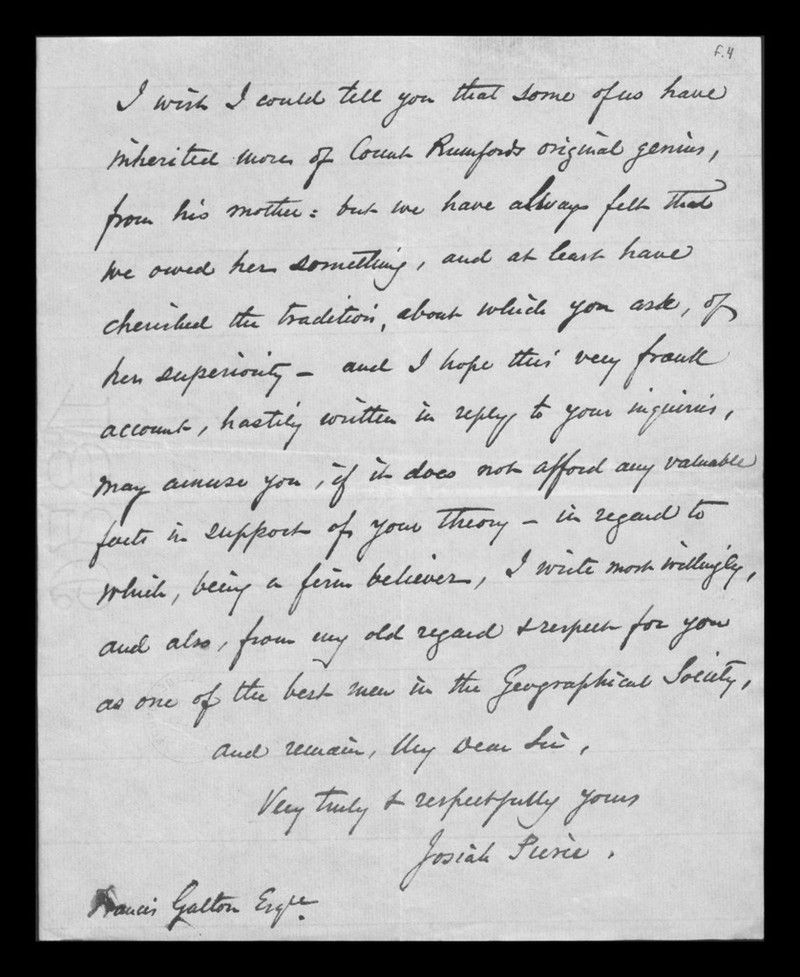 F.4
I wish I could tell you that some of us have
inherited more of Count Rumfords original genius,
from his mother: but we have always felt that
we owed her something, and at least have
cherished the tradition, about which you ask, of
her superiority – and I hope this very frank
account, hastily written in reply to your inquiries,
may amuse you, if it does not afford any valuable
facts in support of your theory – in regard to
which, being a firm believer, I write most willingly,
and also, from my old regard & respect for you
as one of the best men in the Geographical Society,
and remain, My Dear Sir,
Very truly & respectfully yours
Josiah Pierce.
Francis Galton Esqre.